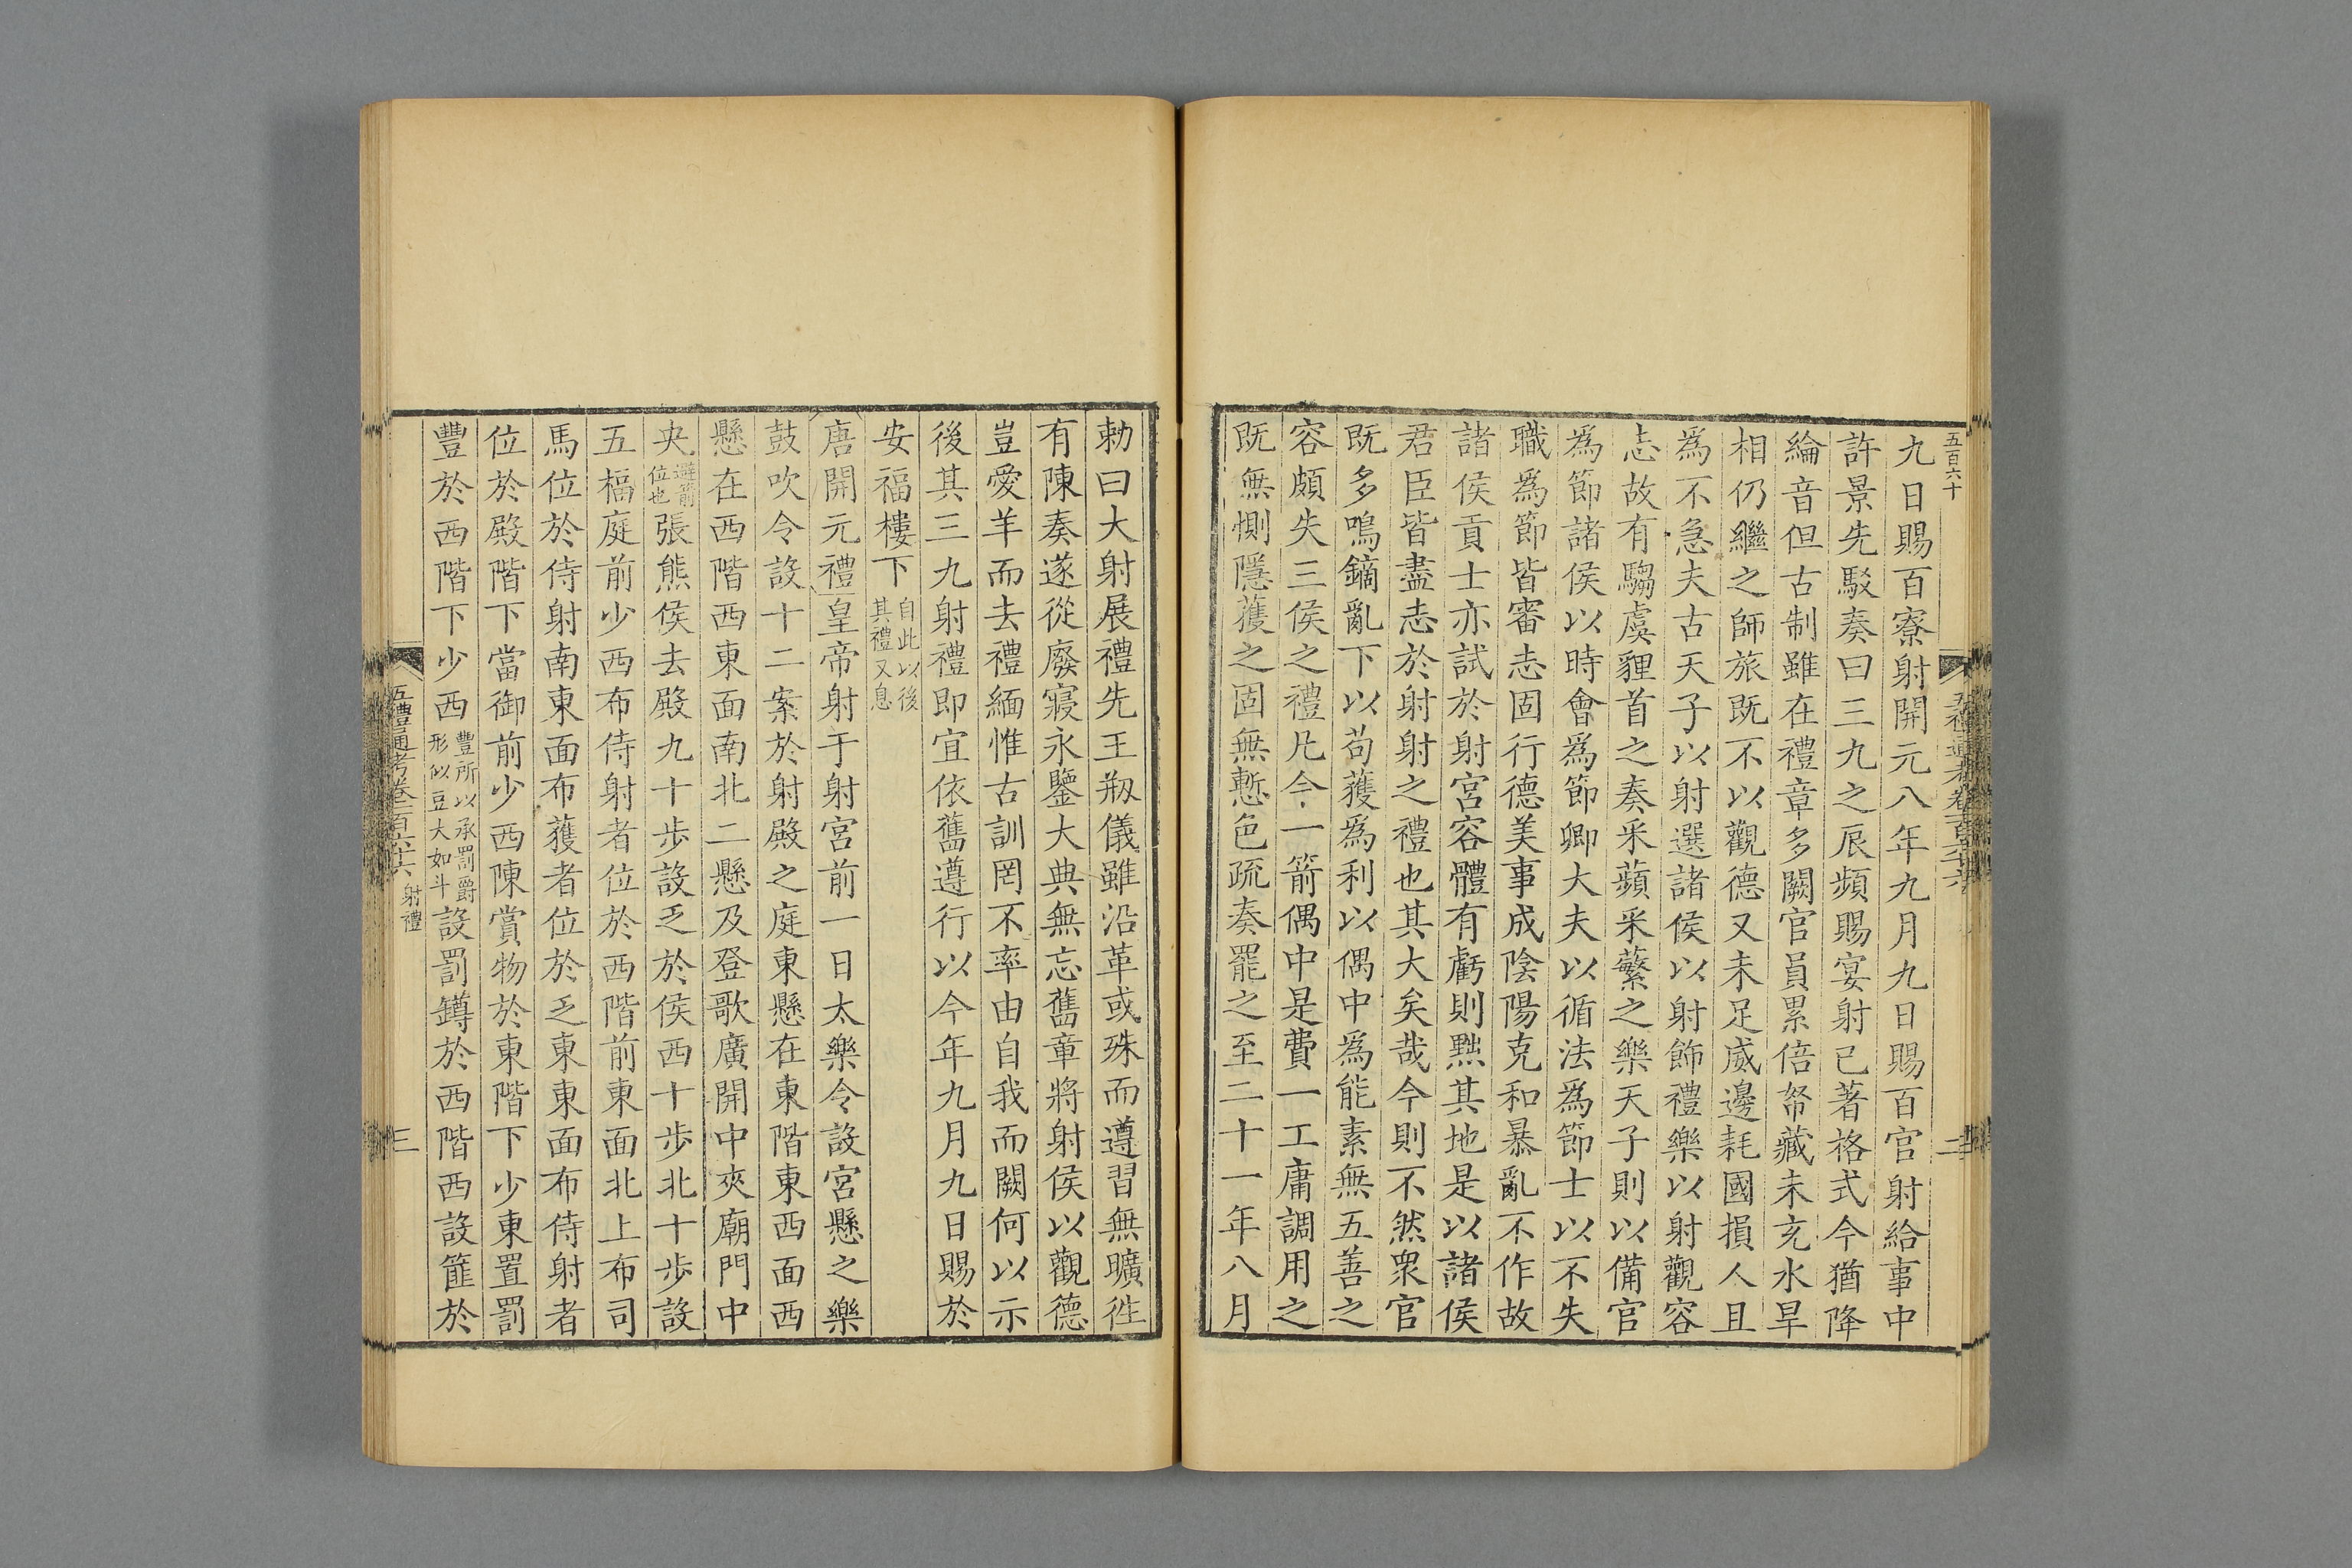 五百六十
九日賜百寮射開元八年九月九日賜百官射給事中
許景先駁奏曰三九之辰頻賜宴射已著格式今猶降
綸音但古制雖在禮章多闕官員累倍帑藏未充水旱
相仍繼之師旅既不以觀德又未足威邊耗國損人且
爲不急夫古天子以射選諸侯以射飾禮樂以射觀容
志故有騶虞貍首之奏采蘋采蘩之樂天子則以備官
爲節諸侯以時會爲節卿大夫以循法爲節士以不失
職爲節皆審志固行德美事成陰陽克和暴亂不作故
諸侯貢士亦試於射宮容體有虧則黜其地是以諸侯
君臣皆盡志於射射之禮也其大矣哉今則不然衆官
既多鳴鏑亂下以苟獲爲利以偶中爲能素無五善之
容頗失三侯之禮凡今一箭偶中是費一工庸調用之
既無惻隱獲之固無慙色疏奏罷之至二十一年八月
五禮通考卷一百六十六
二
勅曰大射展禮先王剏儀雖沿革或殊而遵習無曠徃
有陳奏遂從廢寢永鑒大典無忘舊章將射侯以觀德
豈愛羊而去禮緬惟古訓罔不率由自我而闕何以示
後其三九射禮即宜依舊遵行以今年九月九日賜於
安福樓下自此以後其禮又息
唐開元禮皇帝射于射宮前一日太樂令設宮懸之樂
鼓吹令設十二案於射殿之庭東懸在東階東西面西
懸在西階西東面南北二懸及登歌廣開中夾廟門中
央避箭位也張熊侯去殿九十步設乏於侯西十步北十步設
五楅庭前少西布侍射者位於西階前東面北上布司
馬位於侍射南東面布獲者位於乏東東面布侍射者
位於殿階下當御前少西陳賞物於東階下少東置罰
豐於西階下少西豐所以承罰爵形似豆大如斗設罰罇於西階西設篚於
五禮通考卷一百六十六 射禮
三